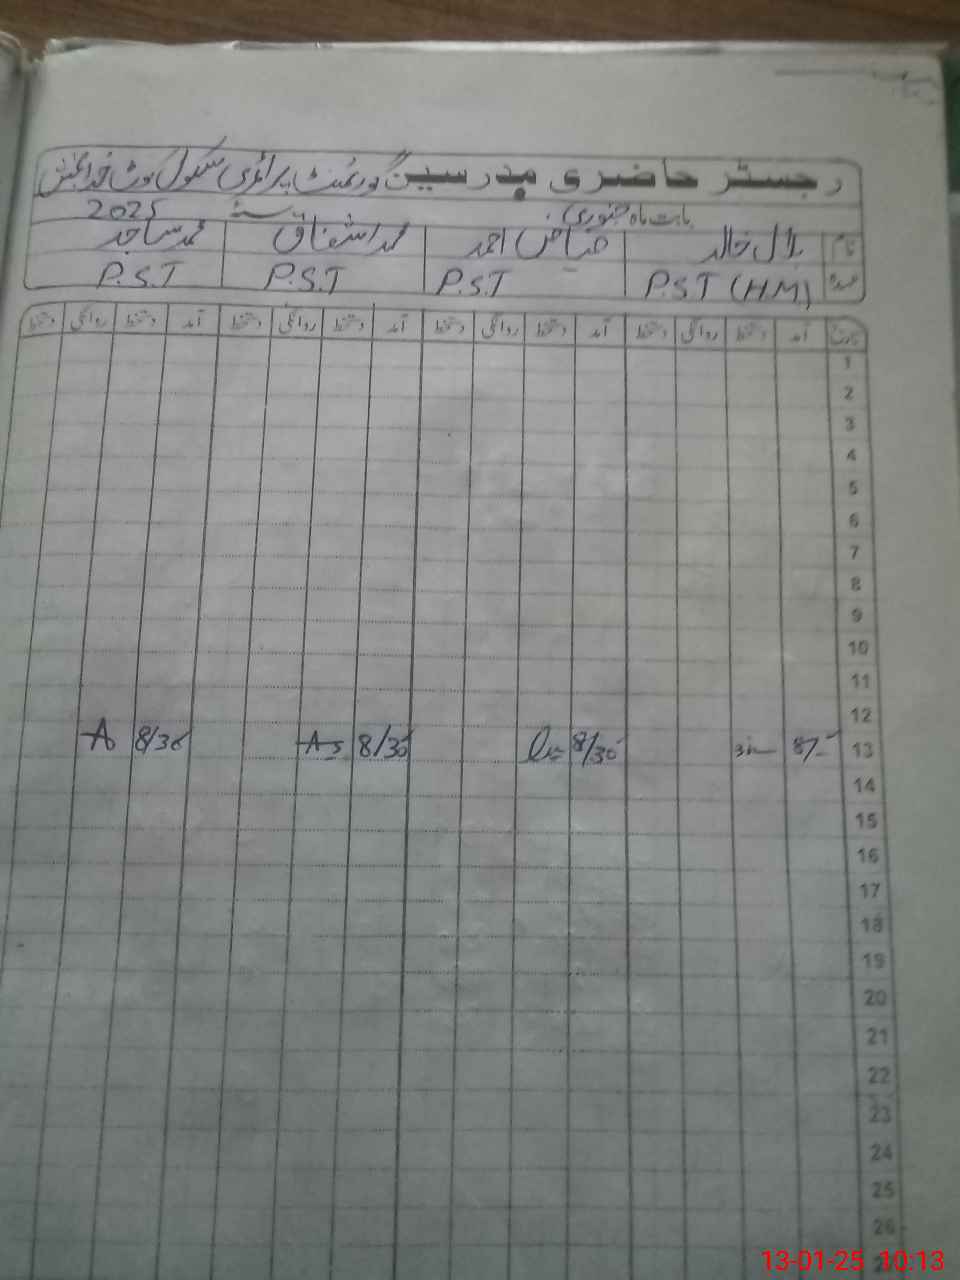 رجسٹر حاضری مدرسین گورنمنٹ پرائمری سکول کوٹ خدابخش
بابت ماہ جنوری سنہ 2025
نام بلال خالد فیاض احمد محمد اشفاق محمد ساجد
عہدہ P.S.T (HM) P.S.T P.S.T P.S.T
تاریخ آمد دستخط روانگی دستخط آمد دستخط روانگی دستخط آمد دستخط روانگی دستخط آمد دستخط روانگی دستخط
1
2
3
4
5
6
7
8
9
10
11
12
13 8/30 8/30 8/30
14
15
16
17
18
19
20
21
22
23
24
25
26
13-01-25 10:13